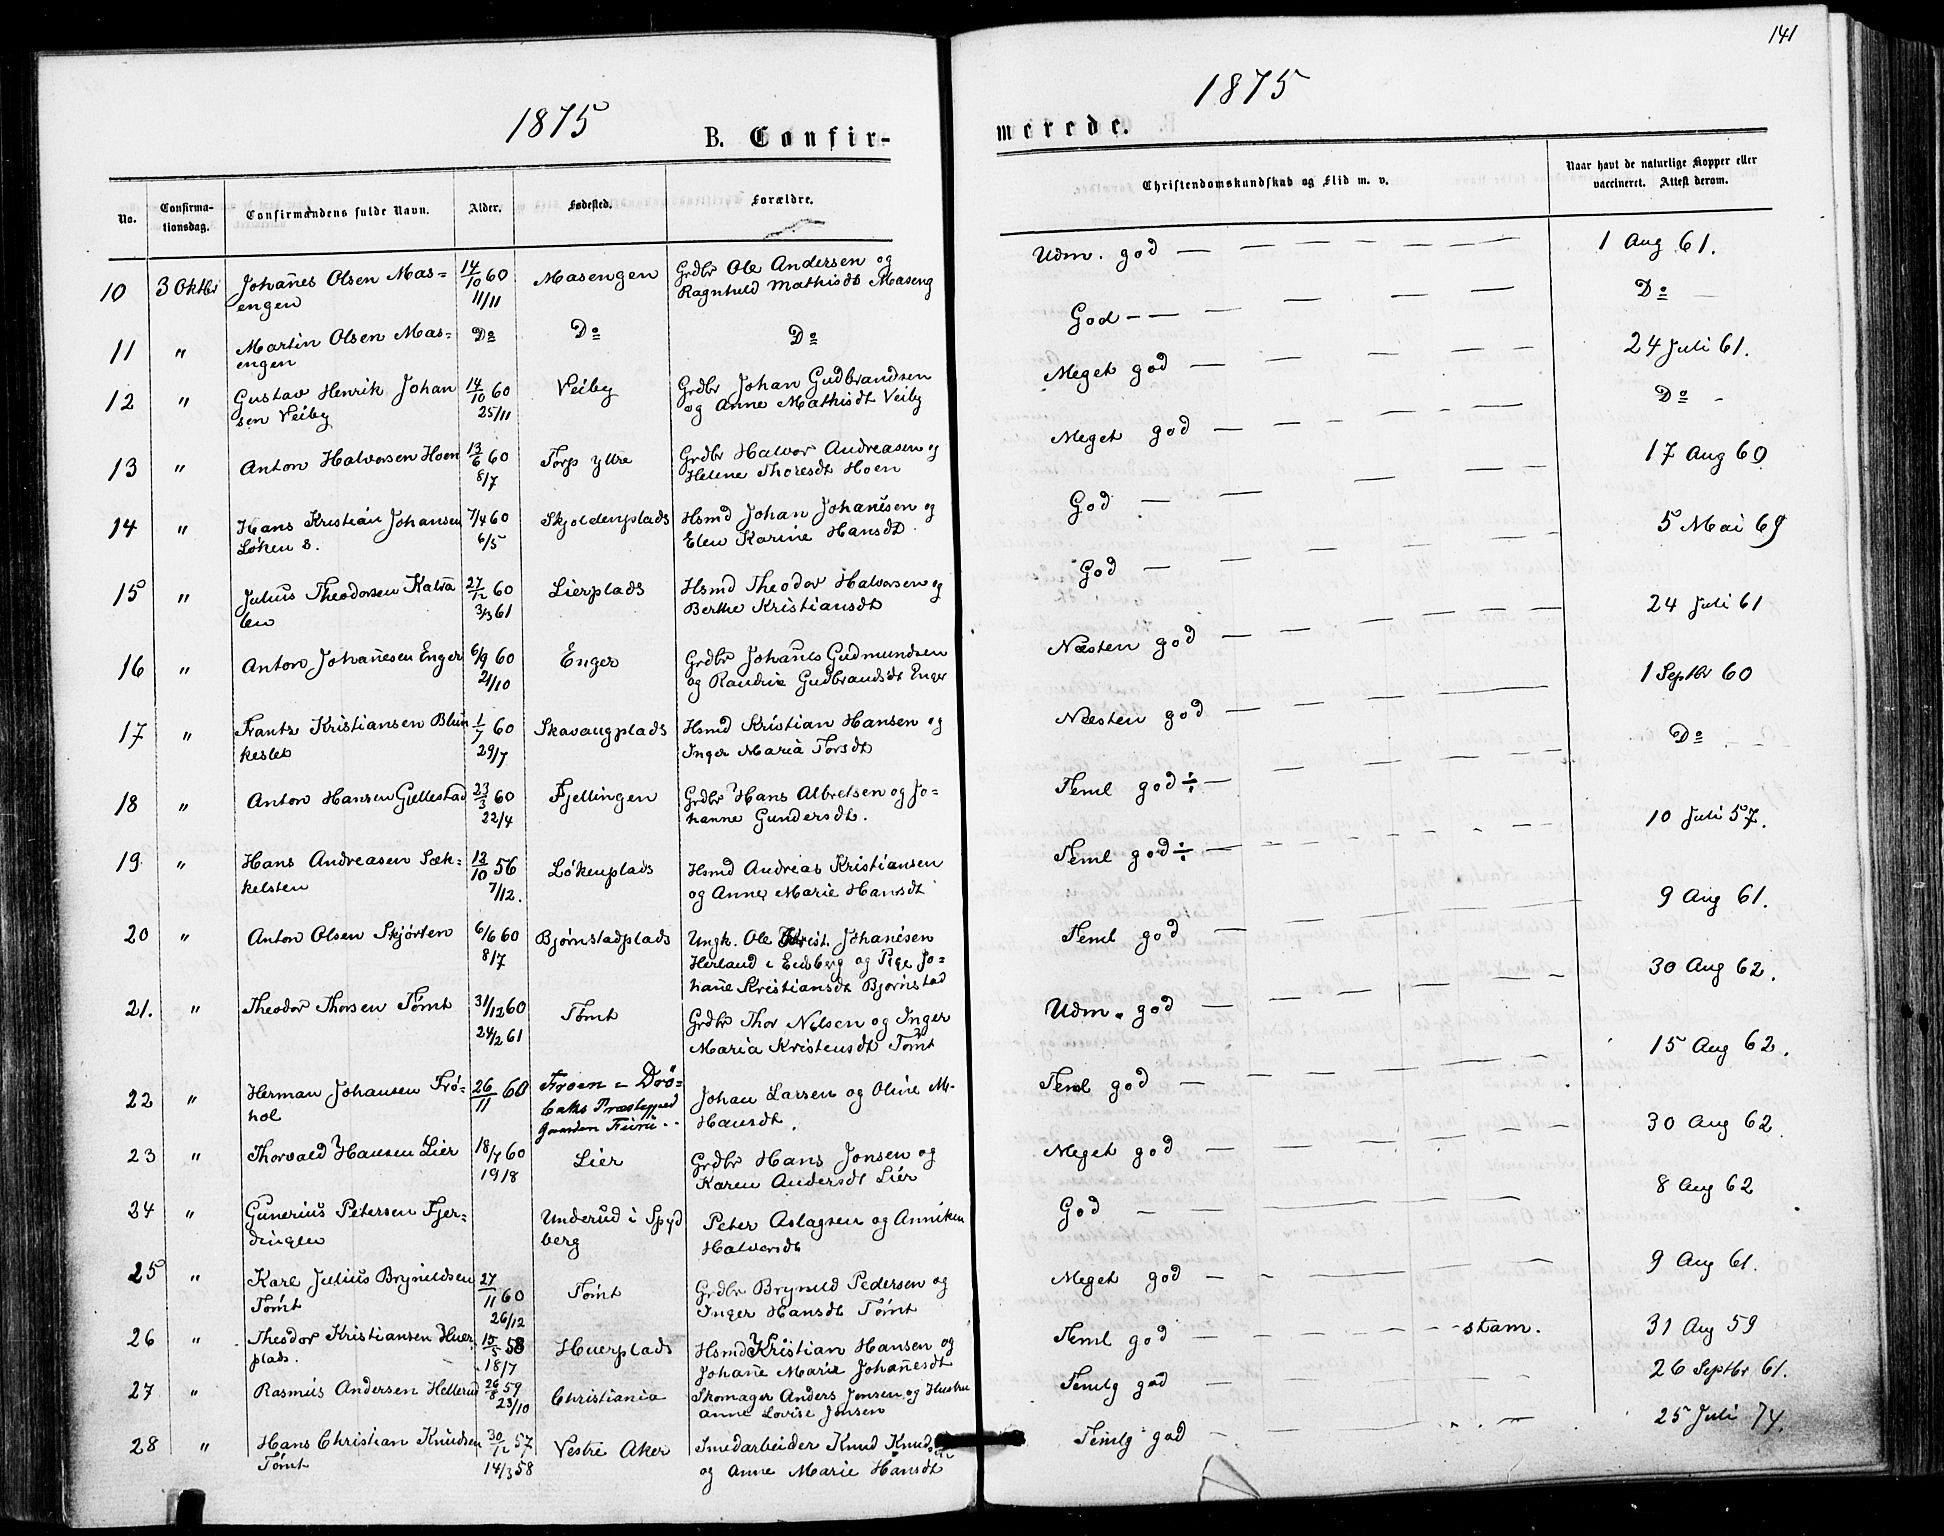 141
1875
1875
B. Confir-
merede.
No.
Confirma-
tionsdag.
Confirmandens fulde Navn.
Alder.
Fødested.
Forældre.
Christendomskundskab og Flid m. v.
Naar havt de naturlige Kopper eller
vaccineret. Attest derom.
10 3 Oktbr Johañes Olsen Mas= 14/10 60 Masengen Grdbr Ole Andersen og Udm. god — 1 Aug 61.
engen 11/11 Ragnhild Mathisdt Maseng
11 " Martin Olsen Mas= Do Do Do God — Do
engen
12 " Gustav Henrik Johan 14/10 60 Veiby Grdbr Johan Gudbrandsen Meget god — 24 Juli 61.
sen Veiby 25/11 og Anne Mathisdt Veiby
13 " Anton Halvorsen Hoen 13/6 60 Torp ytre Grdbr Halvor Andreasen og Meget god — Do
8/7 Helene Thoresdt Hoen
14 " Hans Kristian Johansen 7/4 60 Skjoldenplads Hsmd Johan Johañesen og God — 17 Aug 60
Løken s. 6/5 Elen Karine Hansdt.
15 " Julius Theodorsen Kalva 27/12 60 Lierplads Hsmd Theodor Halvorsen og God — 5 Mai 69
3/3 61 Berthe Kristiansdt
16 " Anton Johañesen Enger 6/9 60 Enger Grdbr Johañes Gudmundsen Næsten god — 24 Juli 61
21/10 og Randine Gudbrandsdt Enger
17 " Frants Kristiansen Blin 1/7 60 Skavaugplads Hsmd Kristian Hansen og Næsten god — 1 Septbr 60
keslet 29/7 Inger Maria Torsdt
18 " Anton Hansen Gjellestad 23/3 60 Fjellingen Grdbr Hans Albretsen og Jo= Teml god ÷ — Do
22/4 hanne Gundersdt.
19 " Hans Andreasen Sæk= 13/10 56 Løkenplads Hsmd Andreas Kristiansen Teml god ÷ — 10 Juli 57.
kelsten 7/12. og Anne Marie Hansdt
20 " Anton Olsen Skjørten 6/6 60 Bjørnstadplads Ungk. Ole Krist. Johañesen Teml god — 9 Aug 61.
8/7 Herland i Eidsberg og Pige Jo=
hañe Kristiansdt Bjørnstad
21. " Theodor Thorsen Tømt 31/12 60 Tømt Grdbr Thor Nilsen og Inger Udm. god — 30 Aug 62.
24/2 61 Maria Kristensdt Tømt
22 " Herman Johansen Frø= 26/11 60 Froen i Drø= Johan Larsen og Oline M. Teml god — 15 Aug 62.
hol baks Præstegjeld Hansdt.
gaarden
23 " Thorvald Hansen Lier 18/7 60 Lier Grdbr Hans Jonsen og Meget god — 30 Aug 62
19/8 Karen Andersdt Lier
24 " Gunerius Petersen Fjer= Underud i Spyd Peter Aslagsen og Anniken God — 8 Aug 62
dingen berg Halvorsdt
25 " Karl Julius Brynildsen 27/11 60 Tømt Grdbr Brynild Pedersen og Meget god — 9 Aug 61.
Tømt 26/12 Inger Hansdt Tømt
26 " Theodor Kristiansen Huer 15/5 58 Huerplads Hsmd Kristian Hansen og Teml god — stam. 31 Aug 59
plads. 18/7 Johañe Marie Johañesdt
27 " Rasmus Andersen Hellerud 26/8 59 Christiania Skomager Anders Jensen og Hustru Temlg god — 26 Septbr 61.
23/10 Anne Lovise Jensen
28 " Hans Christian Knudsen 30/12 57 Vestre Aker Smedarbeider Knud Knudsen Temlg god — 25 Juli 74.
Tømt 14/3 58 og Anne Marie Hansdt